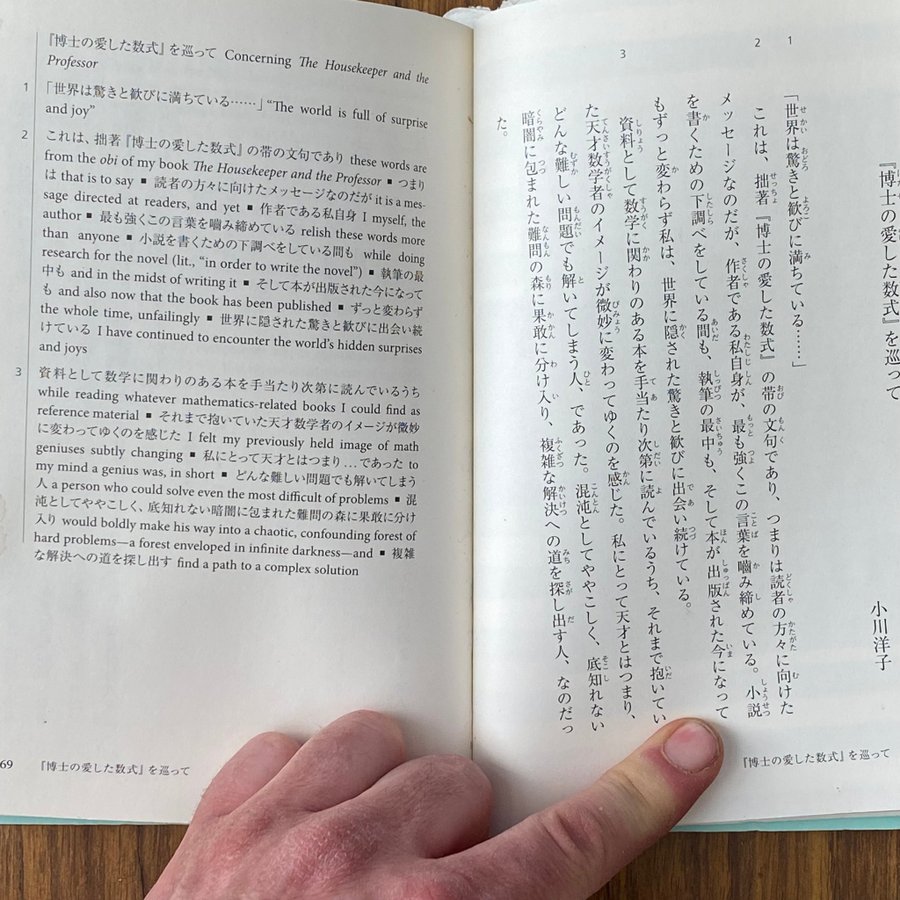 『博士の愛した数式』を巡って Concerning The Housekeeper and the
Professor
1 「世界は驚きと歓びに満ちている……」 “The world is full of surprise
and joy”
2 これは、拙著『博士の愛した数式』の帯の文句であり these words are
from the obi of my book The Housekeeper and the Professor ▪ つまり
は that is to say ▪ 読者の方々に向けたメッセージなのだが it is a mes-
sage directed at readers, and yet ▪ 作者である私自身 I myself, the
author ▪ 最も強くこの言葉を嚙み締めている relish these words more
than anyone ▪ 小説を書くための下調べをしている間も while doing
research for the novel (lit., “in order to write the novel”) ▪ 執筆の最
中も and in the midst of writing it ▪ そして本が出版された今になって
も and also now that the book has been published ▪ ずっと変わらず
the whole time, unfailingly ▪ 世界に隠された驚きと歓びに出会い続
けている I have continued to encounter the world’s hidden surprises
and joys
3 資料として数学に関わりのある本を手当たり次第に読んでいるうち
while reading whatever mathematics-related books I could find as
reference material ▪ それまで抱いていた天才数学者のイメージが微妙
に変わってゆくのを感じた I felt my previously held image of math
geniuses subtly changing ▪ 私にとって天才とはつまり…であった to
my mind a genius was, in short ▪ どんな難しい問題でも解いてしまう
人 a person who could solve even the most difficult of problems ▪ 混
沌としてややこしく、底知れない暗闇に包まれた難問の森に果敢に分け
入り would boldly make his way into a chaotic, confounding forest of
hard problems—a forest enveloped in infinite darkness—and ▪ 複雑
な解決への道を探し出す find a path to a complex solution
69 『博士の愛した数式』を巡って
『博士の愛した数式』を巡って
小川洋子
1 「世界は驚きと歓びに満ちている……」
2 これは、拙著『博士の愛した数式』の帯の文句であり、つまりは読者の方々に向けた
メッセージなのだが、作者である私自身が、最も強くこの言葉を嚙み締めている。小説
を書くための下調べをしている間も、執筆の最中も、そして本が出版された今になって
もずっと変わらず私は、世界に隠された驚きと歓びに出会い続けている。
3 資料として数学に関わりのある本を手当たり次第に読んでいるうち、それまで抱いてい
た天才数学者のイメージが微妙に変わってゆくのを感じた。私にとって天才とはつまり、
どんな難しい問題でも解いてしまう人、であった。混沌としてややこしく、底知れない
暗闇に包まれた難問の森に果敢に分け入り、複雑な解決への道を探し出す人、なのだっ
た。
『博士の愛した数式』を巡って